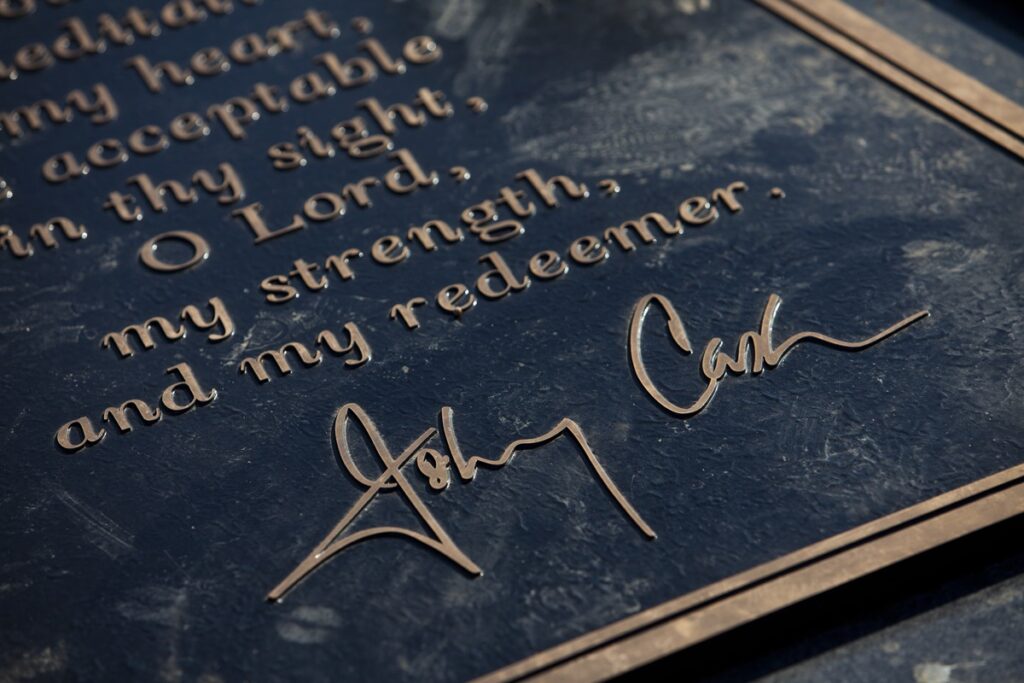 my heart,
acceptable
in thy sight,
O Lord,
my strength,
and my redeemer.
Johnny Cash